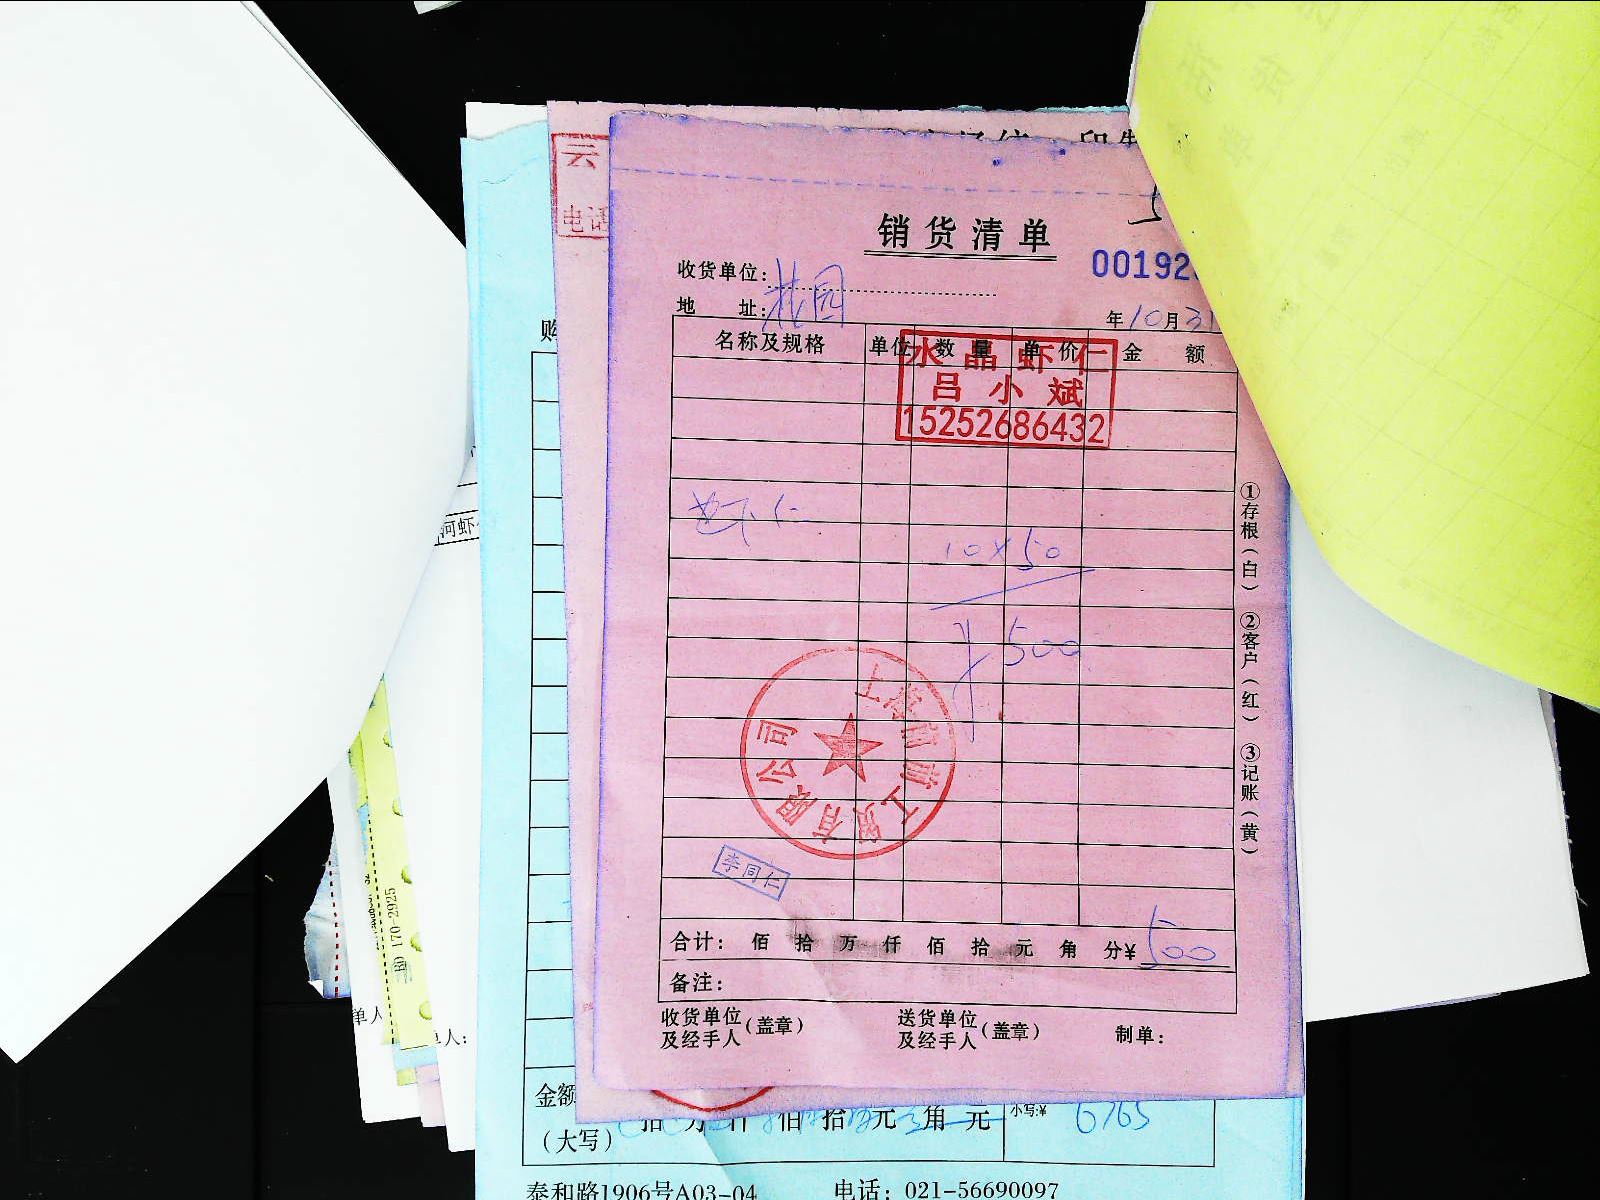 云
电话
销货清单
收货单位:
花园
00192
地 址:
年10月31
名称及规格 单位 数量 单价 金 额
水晶虾仁
吕小斌
15252686432
虾仁
10×50
¥500
上海市
工贸有限公司
李同仁
①存根(白) ②客户(红) ③记账(黄)
合计: 佰 拾 万 仟 佰 拾 元 角 分¥ 500
备注:
收货单位及经手人(盖章) 送货单位及经手人(盖章) 制单:
购
河虾
170-2925
单人
单人:
金额
(大写)
拾 万 仟 佰 拾 元 角 元
小写:¥ 6765
泰和路1906号A03-04 电话: 021-56690097